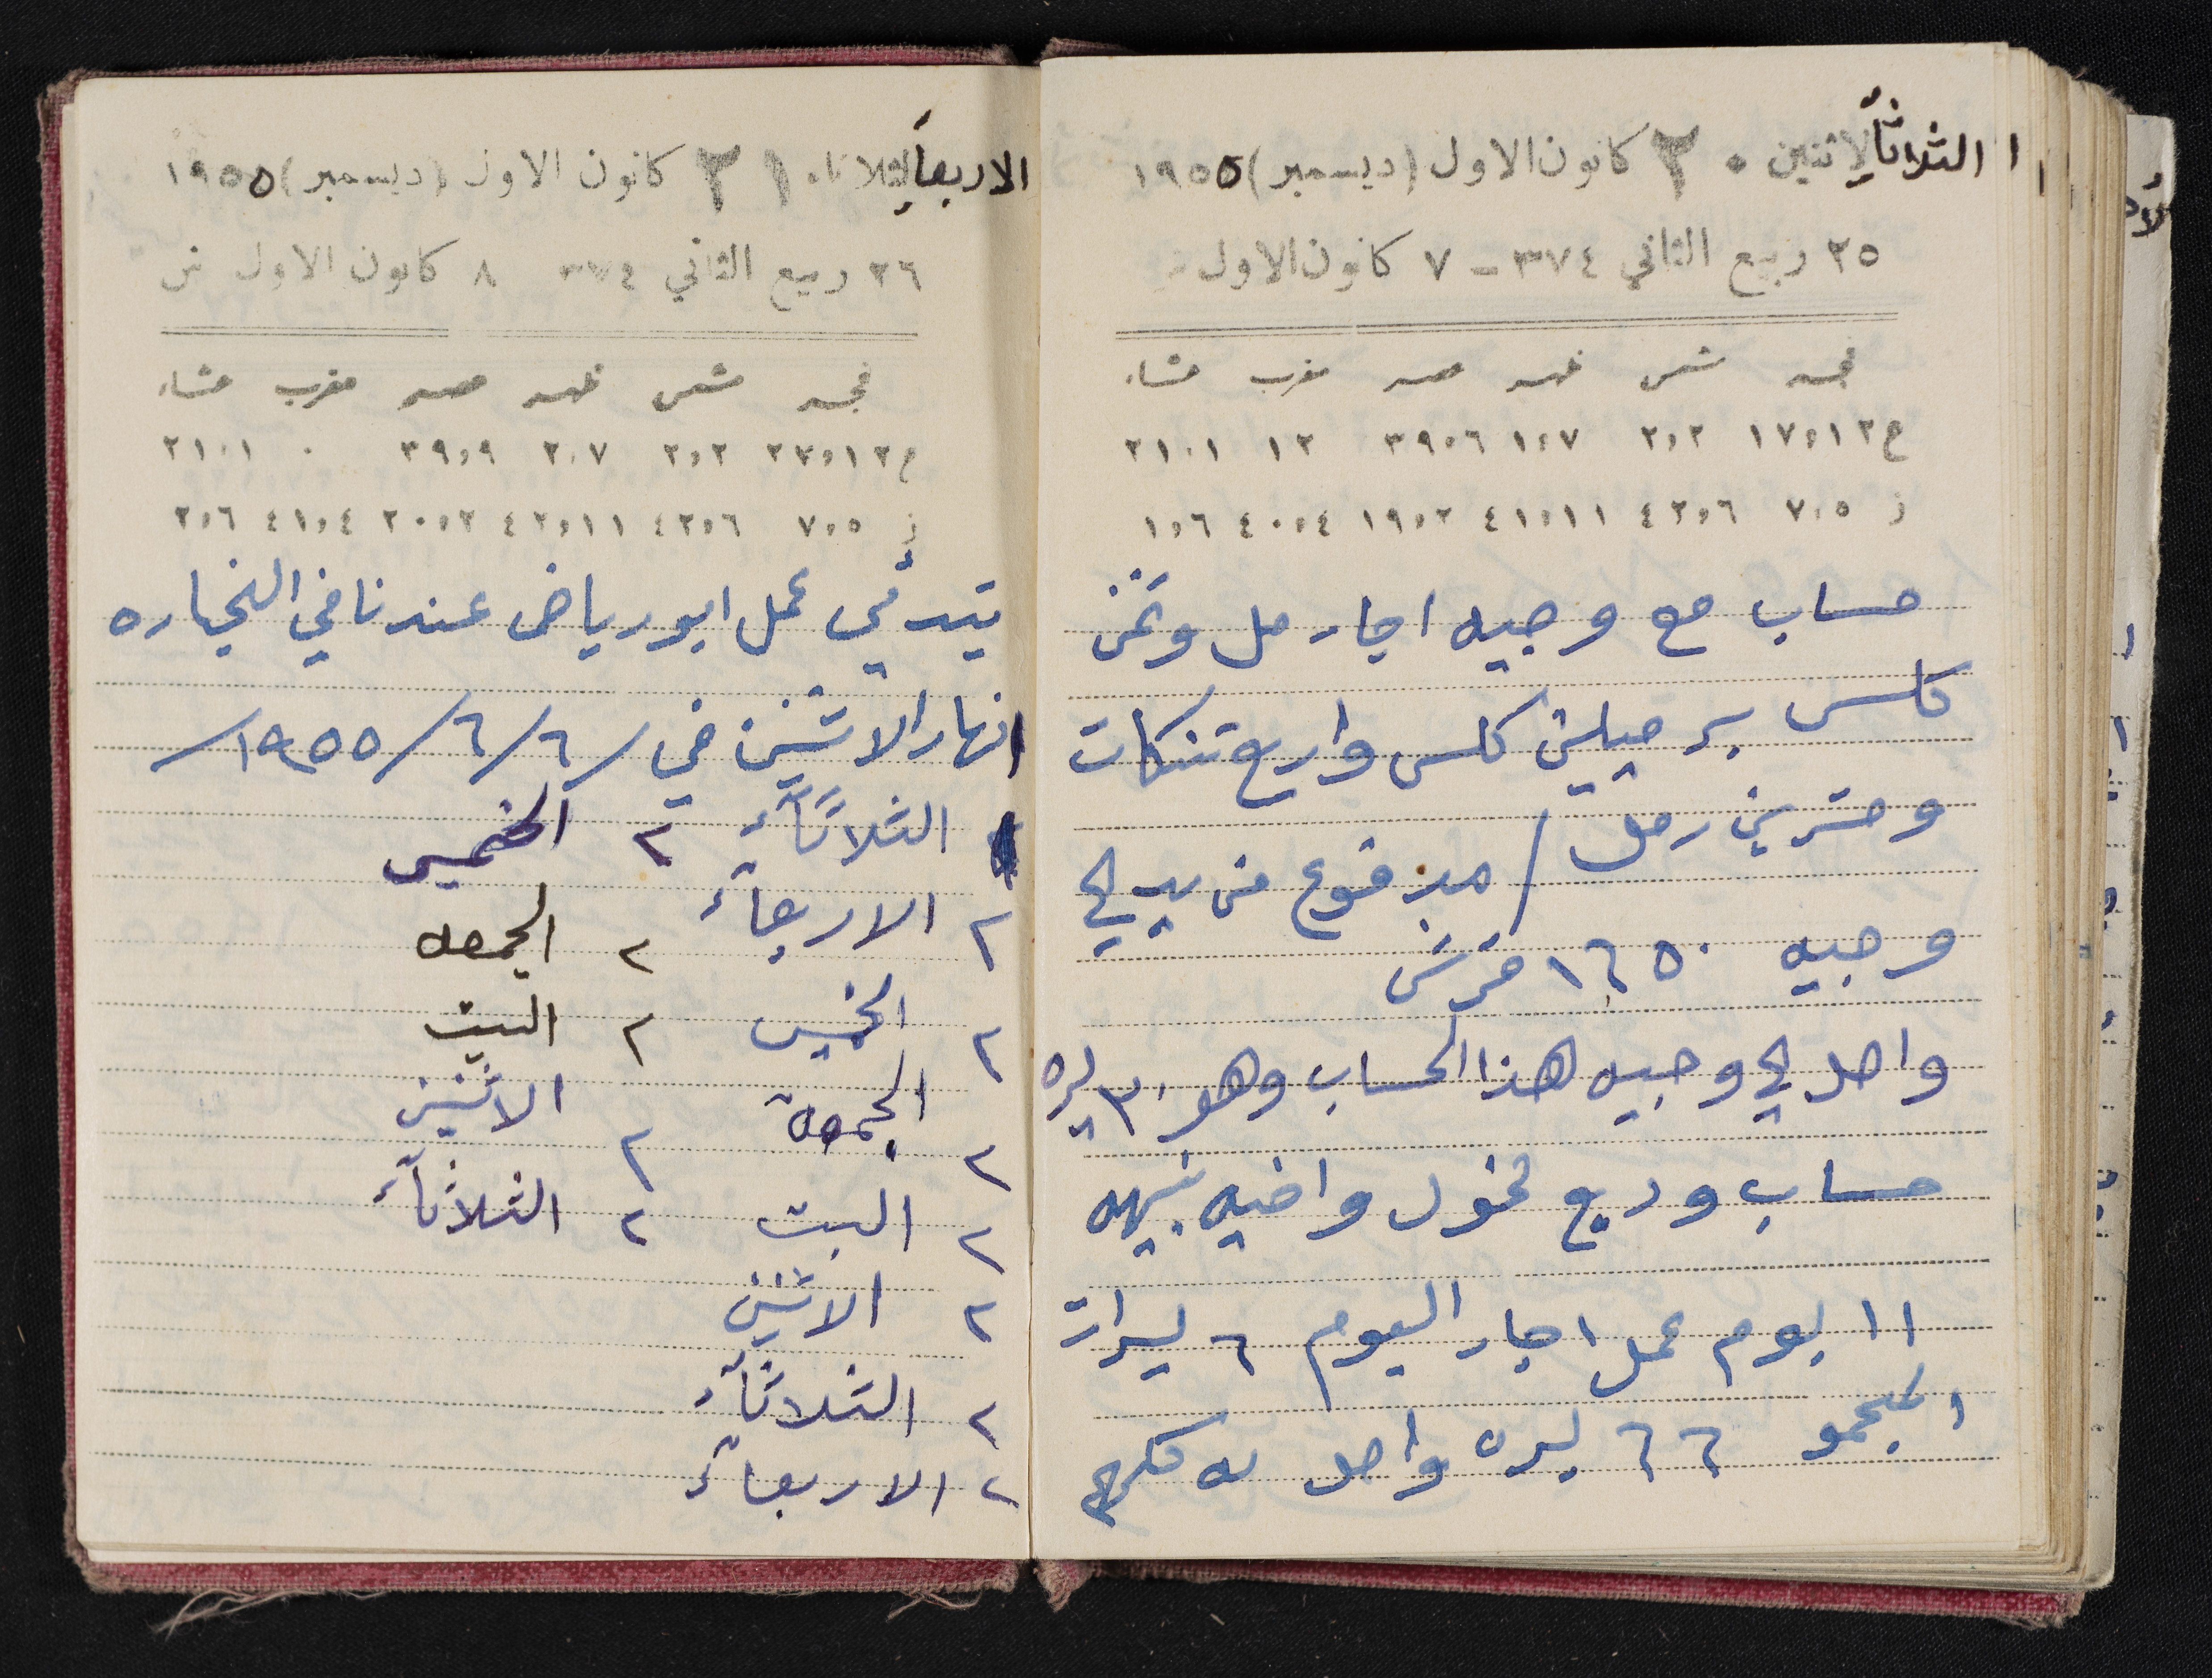 الثلاثاء الاثنين ٢٠ كانون الاول (ديسمبر) ١٩٥٥
٢٥ ربيع الثاني ٣٧٤ - ٧ كانون الاول
فجر شمس ظهر عصر مغرب عشاء
ع ١٧،١٢ ٢،٢ ١،٧ ٣٩،٦ ١٢ ٢١،١
ز ٧،٥ ٤٢،٦ ٤١،١١ ١٩،٢ ٤٠،٤ ١،٦
حساب مع وجيه اجار رمل وثمن
كلس برميلين كلس واربع تنكات
ومترين رمل / مدفوع من يدي الى
وجيه ١٦٥٠ قرش
واصل الى وجيه هذا الحساب وهو ٣٠ ليره
حساب وديع نخول واخيه نبيه
١١ يوم عمل اجار اليوم ٦ ليرات
المجمو ٦٦ ليره واصل له
الاربعاء الثلاثاء ٢١ كانون الاول (ديسمبر) ١٩٥٥
٢٦ ربيع الثاني ٣٧٤ ٨ كانون الاول ش
فجر شمس ظهر عصر مغرب عشاء
ع ١٢، ٢،٢ ٢،٧ ٣٩،٩ ٠ ٢١،١
ز ٧،٥ ٤٢،٦ ٤٢،١١ ٢٠،٢ ٤١،٤ ٢،٦
يتدئ عمل ابو رياض عندنا في النجاره
نهار الاثنين في / ٦ / ٦ / ١٩٥٥ /
الثلاثاء ٢ الخميس
٢ الاربعاء ٢ الجمعه
٢ الخميس ٢ السبت
٢ الجمعة ٢ الاثنين
٢ السبت ٢ الثلاثاء
٢ الاثنين
٢ الثلاثاء
٢ الاربعاء